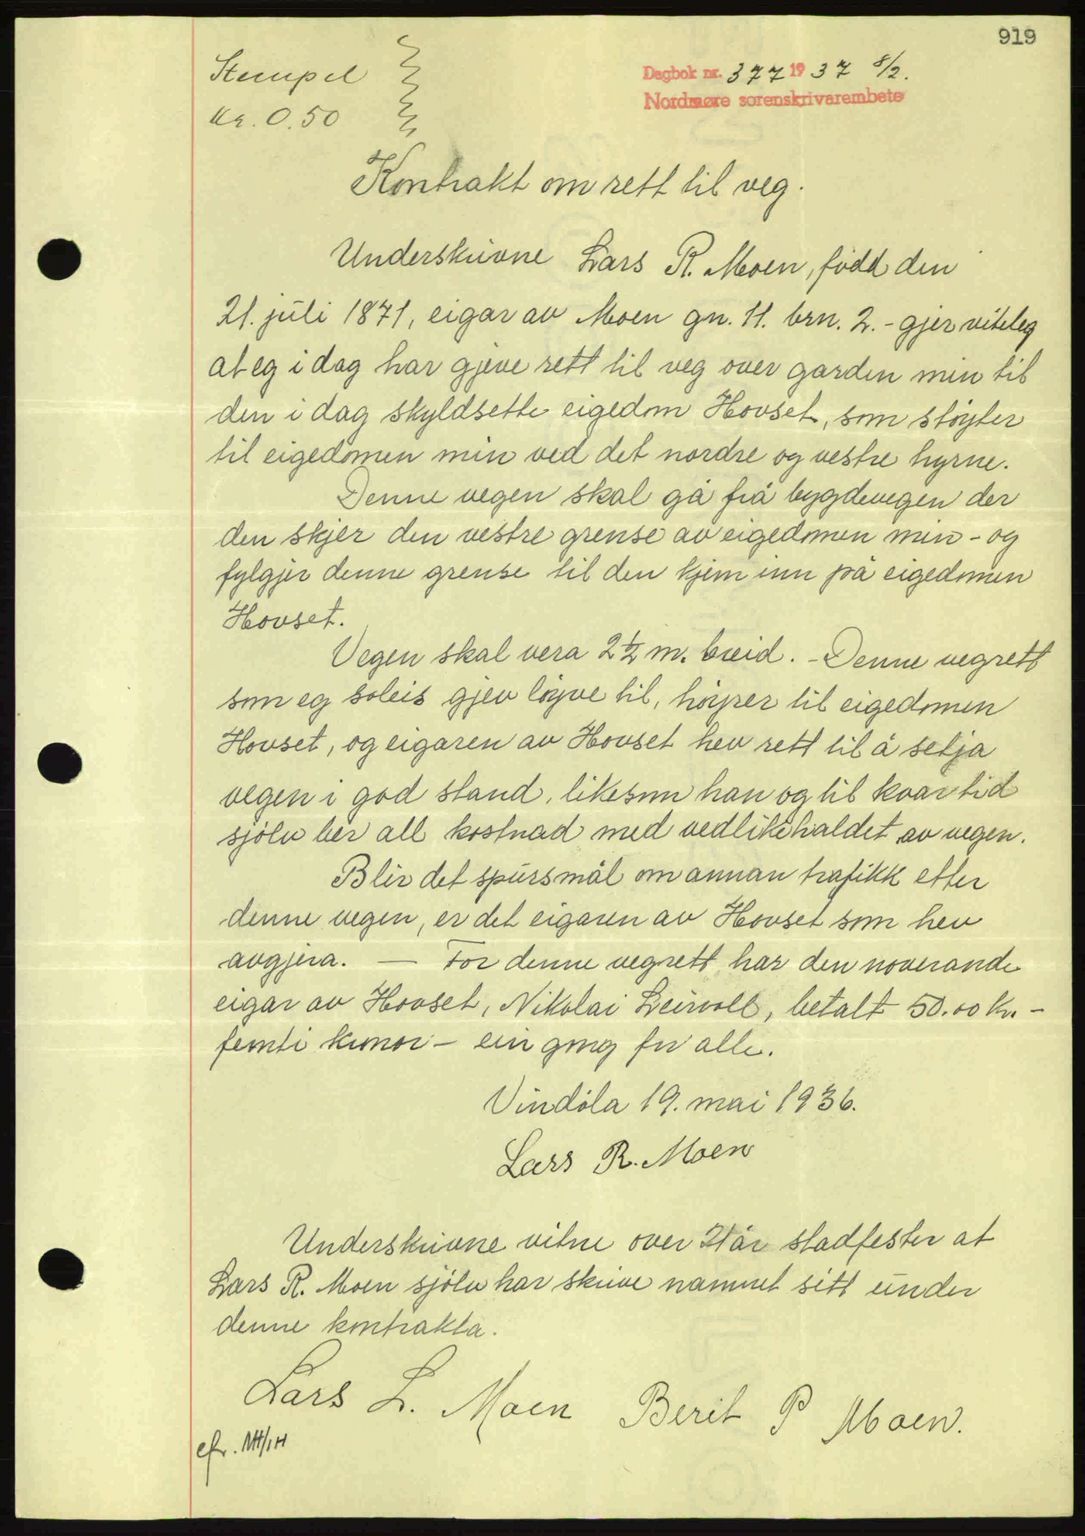 919
Stempel
Kr. 0.50
Dagbok nr. 377 1937 8/2.
Nordmøre sorenskrivarembete
Kontrakt om rett til veg.
Underskrivne Lars R. Moen, född den
21. juli 1871, eigar av Moen gn. 11. brn. 2. - gjer viteleg
at eg i dag har gjeve rett til veg over garden min til
den i dag skyldsette eigedom Hovset, som stöyter
til eigedomen min ved det nordre og vestre hyrne.
Denne vegen skal gå frå bygdevegen der
den skjer den vestre grense av eigedomen min - og
fylgjer denne grense til den kjem inn på eigedomen
Hovset.
Vegen skal vera 2 1/2 m. breid. - Denne vegrett
som eg soleis gjev löyve til, höyrer til eigedomen
Hovset, og eigaren av Hovset hev rett til å setja
vegen i god stand, likesom han og til kvar tid
sjölv ber all kostnad med vedlikehaldet av vegen.
Blir det spursmål om annan trafikk etter
denne vegen, er det eigaren av Hovset som hev
avgjera. — For denne vegrett har den noverande
eigar av Hovset, Nikolai Leirvoll, betalt 50.00 kr. -
femti kronor - ein gong for alle.
Vindöla 19. mai 1936.
Lars R. Moen
Underskrivne vitne over 21 år stadfester at
Lars R. Moen sjölv har skrive namnet sitt under
denne kontrakta.
Lars L. Moen Berit P Moen.
efr.